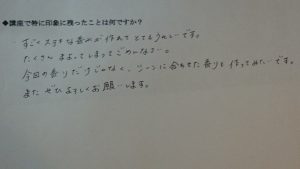 ◆講座で特に印象に残ったことは何ですか？
すごくステキな香水が作れてとてもうれしいです。
たくさんまよってしまってごめんなさい。
今回の香りだけじゃなく、シーンに合わせた香りも作ってみたいです。
またぜひよろしくお願いします。